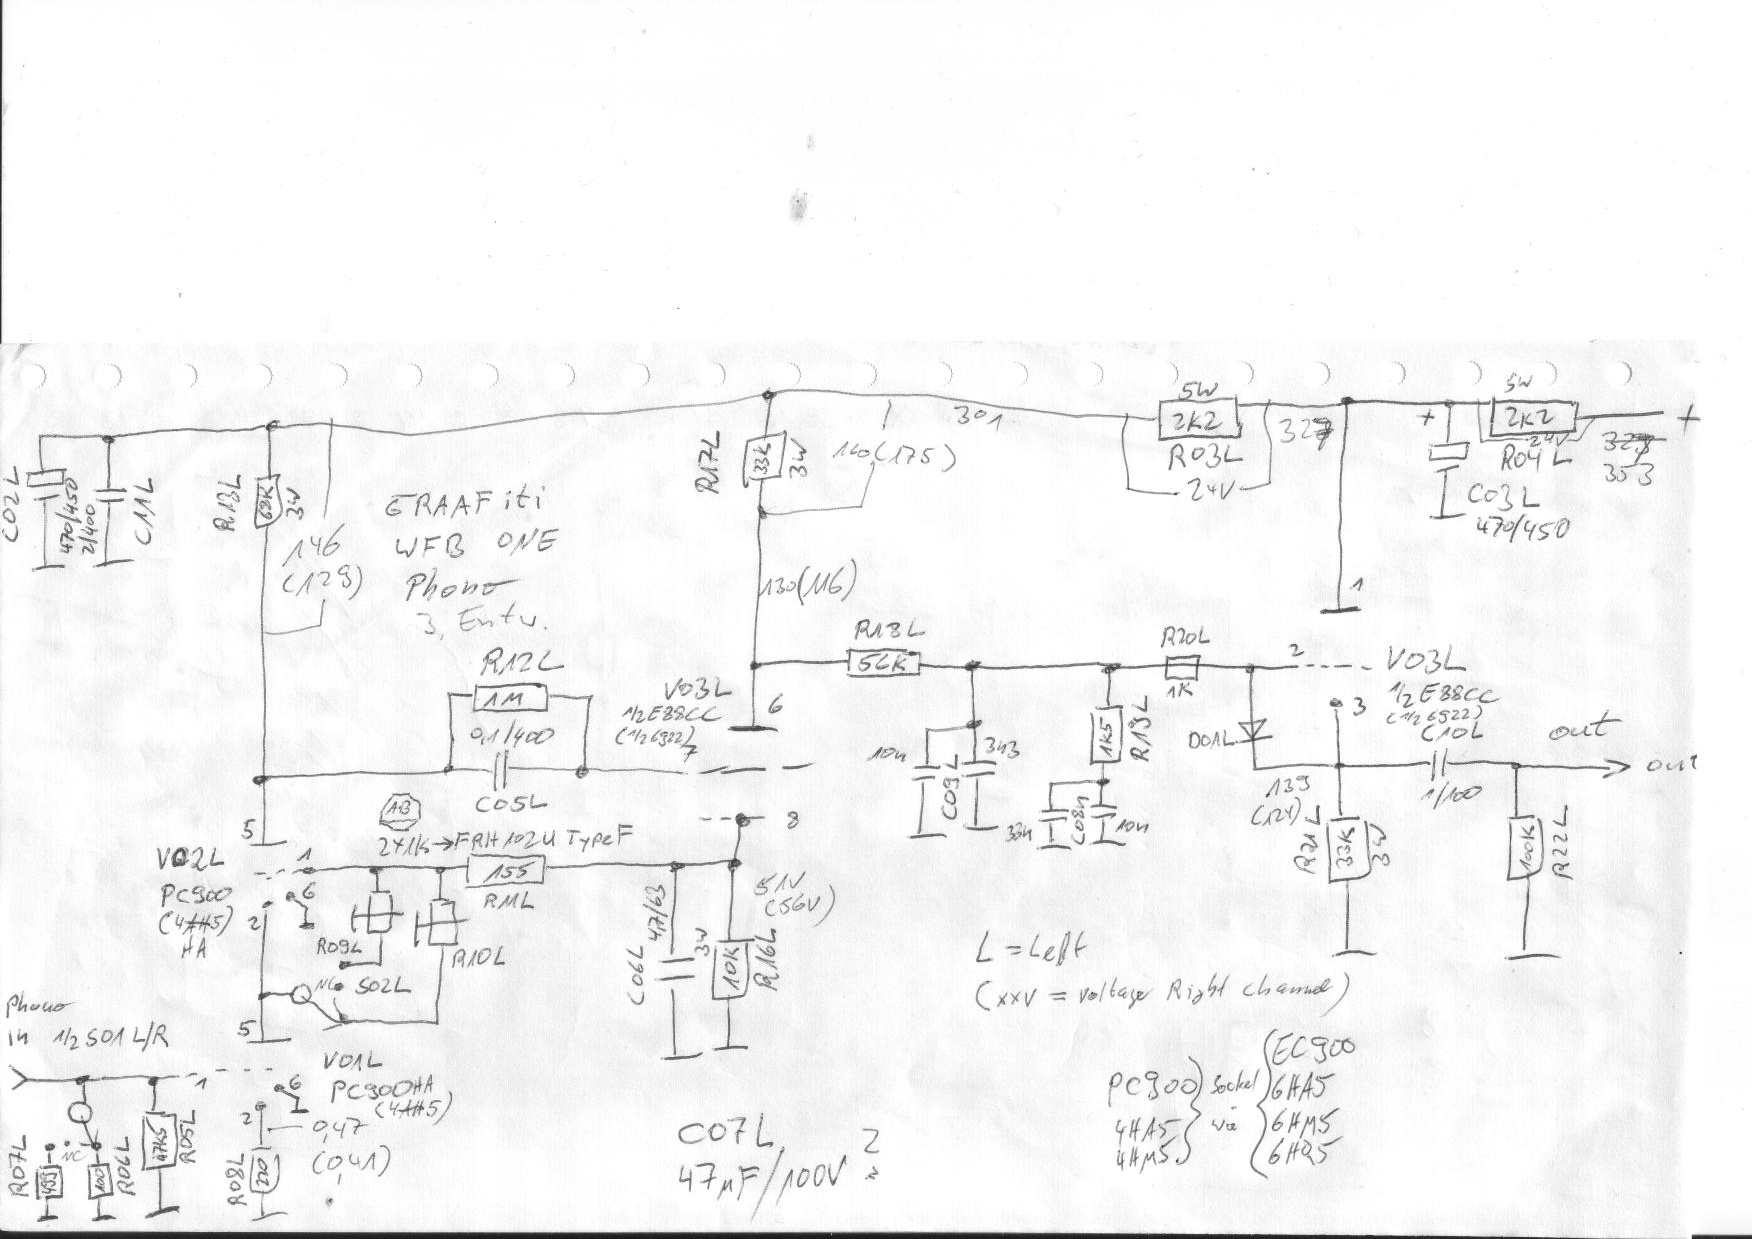 5W
2K2
R03L
24V
301
327
5W
2K2
24V
R04L
327
353
+
+
C03L
470/450
C02L
470/450
2/400
C11L
R13L
68K
3W
146
(129)
GRAAFiti
WFB ONE
Phono
3. Entw.
R17L
33K
3W
140(175)
130(116)
1
R12L
1M
0,1/400
C05L
V03L
1/2E88CC
(1/26922)
7
6
R18L
56K
R20L
1K
2
V03L
1/2E88CC
(1/26922)
3
10n
3n3
C09L
1K5
R19L
33n
C08L
10n
D01L
139
(124)
C10L
1/100
out
out
R21L
33K
3W
100K
R22L
5
V02L
PC900
(4AH5)
HA
1
6
2
AB
2x1K→FRH102U TypeF
155
R11L
R09L
R10L
NC
S02L
8
51V
(56V)
C06L
47/63
3W
10K
R16L
L = Left
(xxV = Voltage Right channel)
Phono
in 1/2 S01 L/R
5
V01L
PC900HA
(4AH5)
1
6
2
0,47
(0,41)
R07L
499
NC
100
R06L
47K5
R05L
R08L
220
C07L ?
47µF/100V
PC900
4HA5
4HM5
Sockel
wie
EC900
6HA5
6HM5
6HQ5